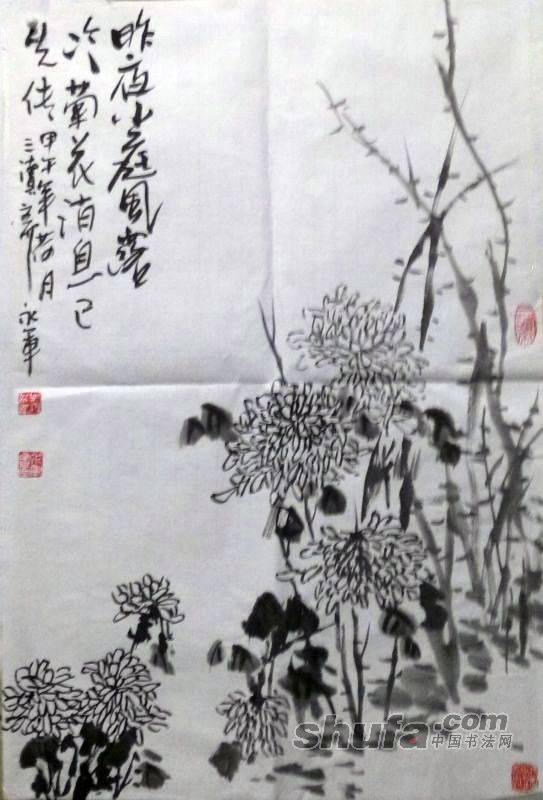 昨夜小庭风露
冷菊花消息已
先传甲午年荷月
永军
shufa.com
中国书法网